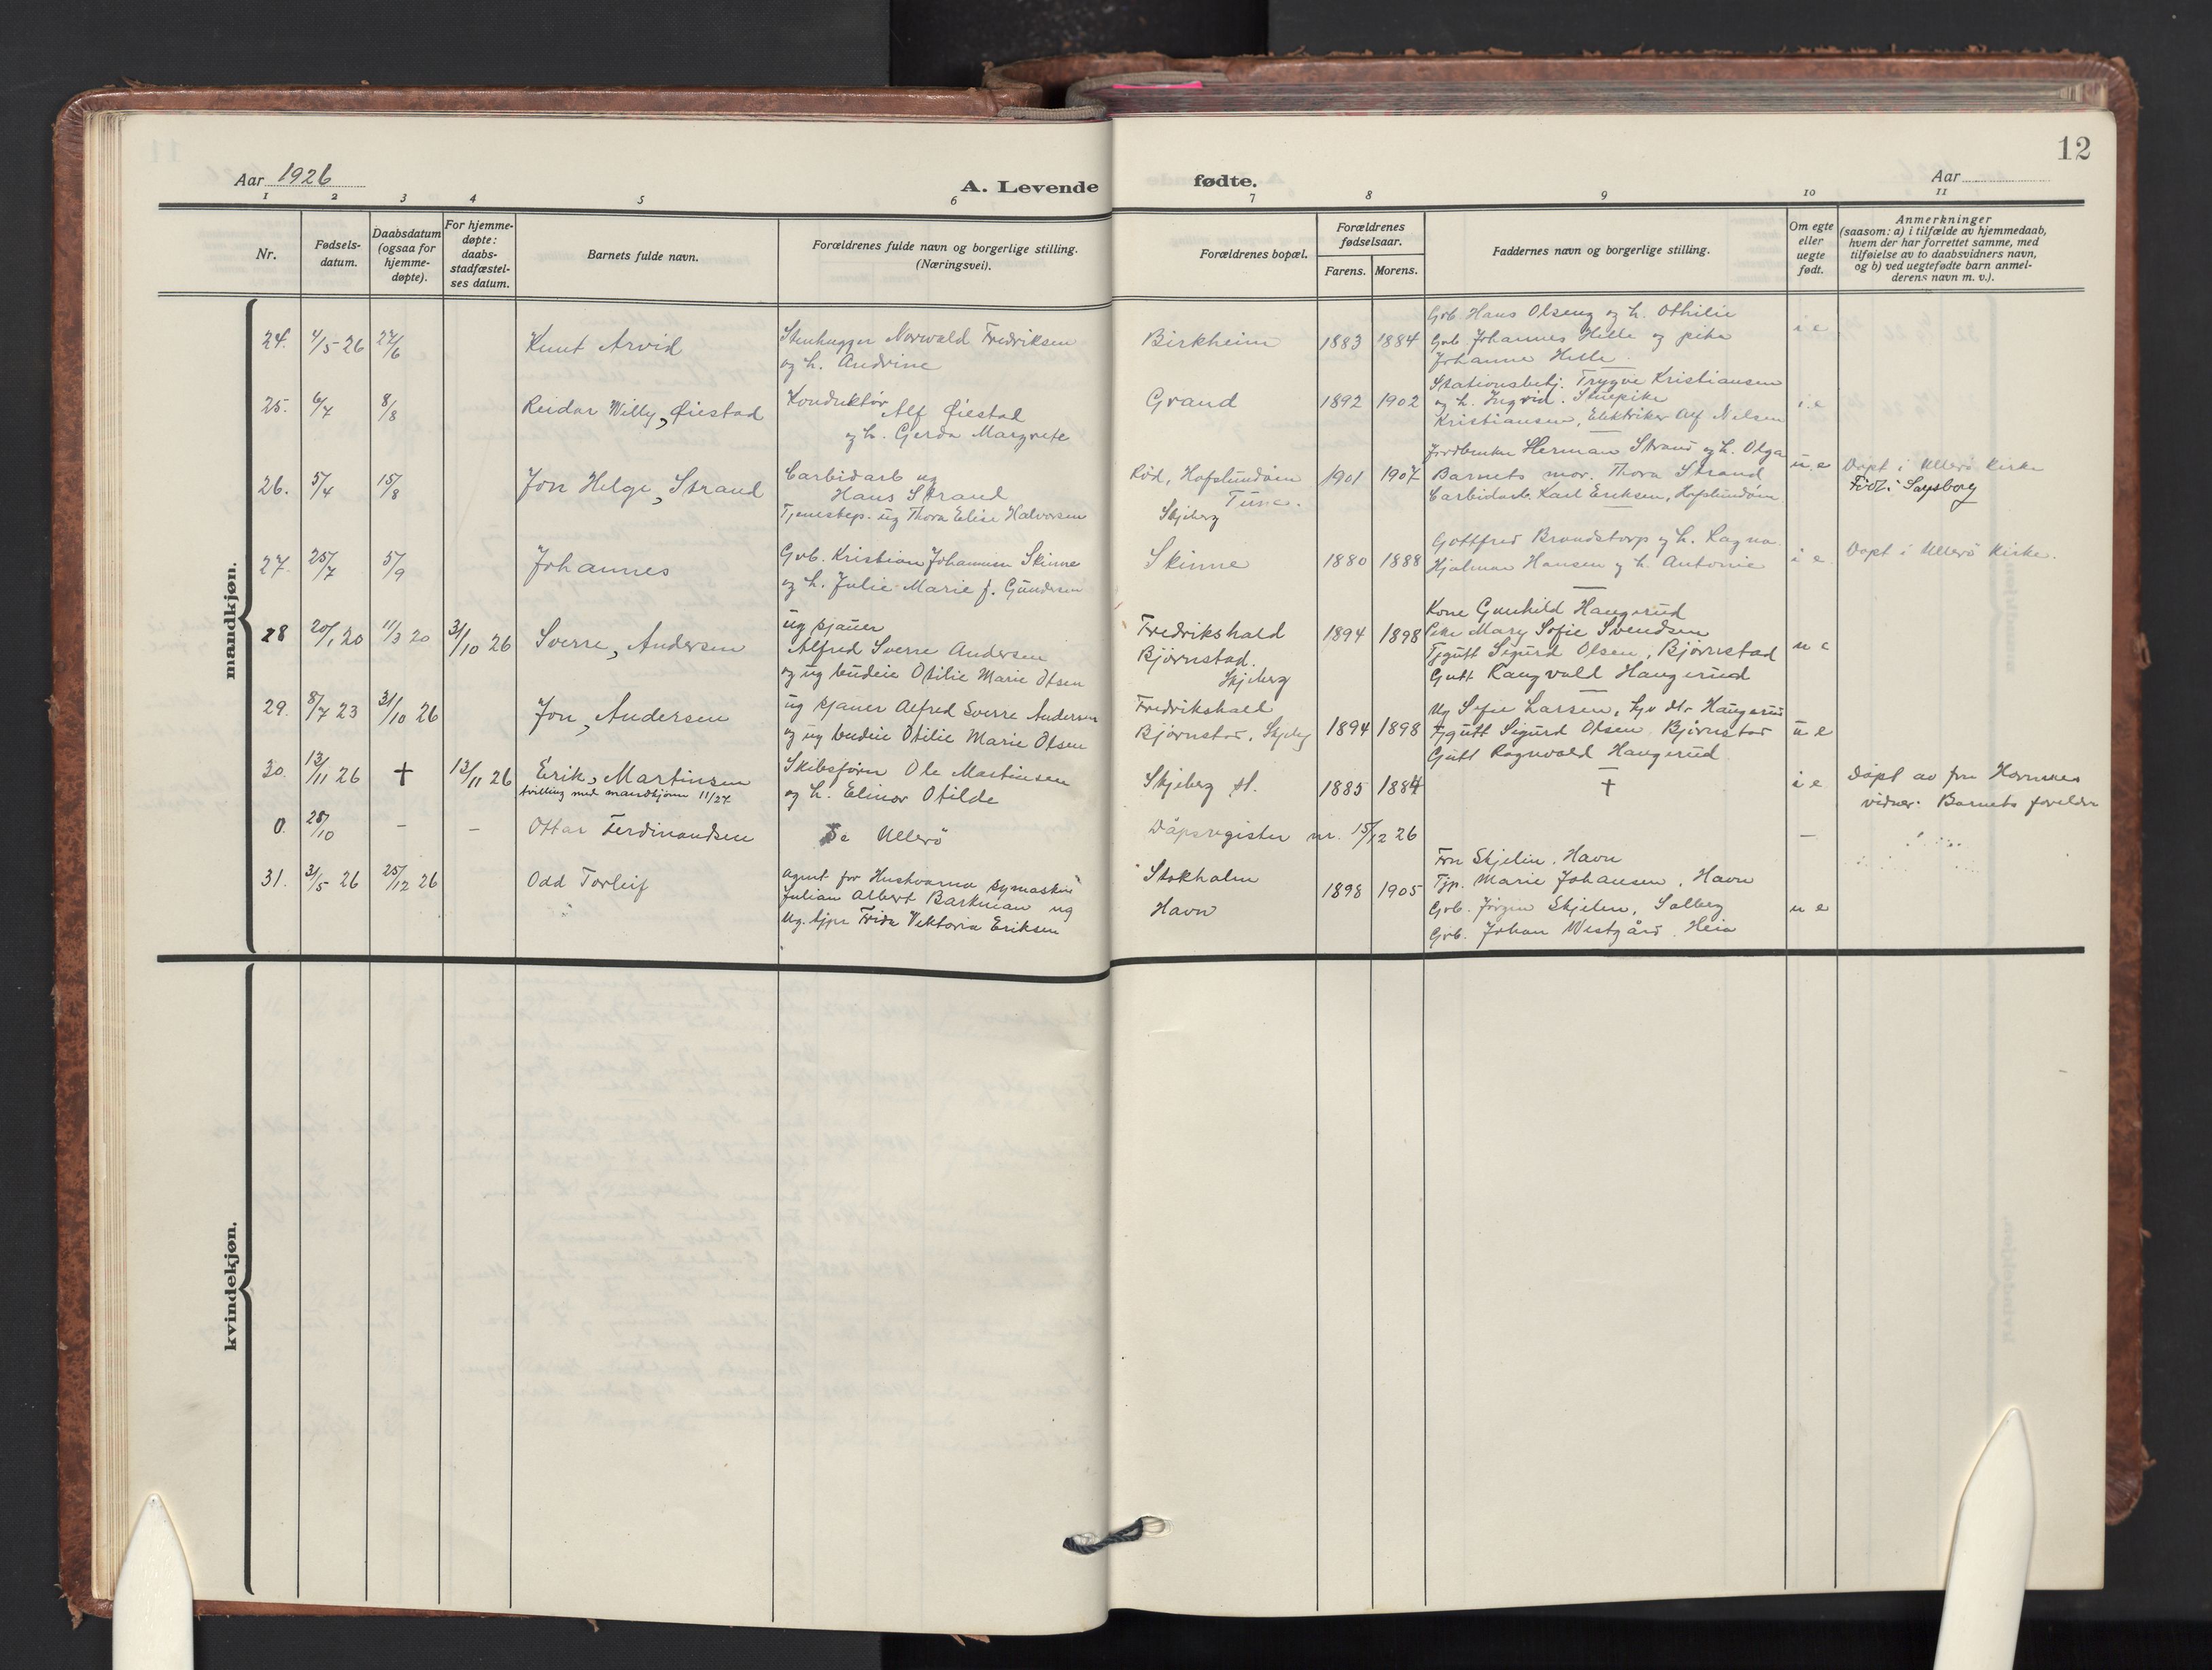 12
Aar 1926
A. Levende fødte.
Aar
1 2 3 4 5 6 7 8 9 10 11
Nr.
Fødsels-
datum.
Daabsdatum
(ogsaa for
hjemme-
døpte).
For hjemme-
døpte:
daabs-
stadfæstel-
ses datum.
Barnets fulde navn.
Forældrenes fulde navn og borgerlige stilling.
(Næringsvei).
Forældrenes bopæl.
Forældrenes
fødselsaar.
Farens. Morens.
Faddernes navn og borgerlige stilling.
Om egte
eller
uegte
født.
Anmerkninger
(saasom: a) i tilfælde av hjemmedaab,
hvem der har forrettet samme, med
tilføielse av to daabsvidners navn,
og b) ved uegtefødte barn anmel-
derens navn m. v.).
mandkjøn.
24. 4/5 26 27/6 Knut Arvid
Stenhugger Norwald Fredriksen
og h. Andrine
Birkheim 1883 1884
Grb. Hans Olseng og h. Othilie
Grb. Johannes Helle og pike
Johanne Helle.
i e
25. 6/7 8/8 Reidar Willy, Øiestad
Konduktør
Alf Øiestad
og h. Gerda Margrete
Grand 1892 1902
Stationsbetj. Trygve Kristiansen
og h. Ingrid. Stuepike
Kristiansen, Elektriker Alf Nilsen
i. e
26. 5/4 15/8 Jon Helge, Strand
Carbidarb ug
Hans Strand
Tjenestep. ug Thora Elise Halvorsen
Rød, Hafslundsøen
Tune.
Skjeberg
1901 1907
Jordbruker Herman Strand og h. Olga
Barnets mor. Thora Strand
Carbidarb. Karl Eriksen, Hafslundsøen
u. e
Døpt i Ullerø Kirke
Født i Sarpsborg
27. 25/7 5/9 Johannes
Grb. Kristian Johannesen Skinne
og h. Julie Marie f. Gundersen
Skinne 1880 1888
Gottfred Brandstorp og h. Ragna.
Hjalmar Hansen og h. Antonie
i e
Døpt i Ullerø Kirke.
28 20/1 20 11/3 20 31/10 26 Sverre, Andersen
ug sjauer
Alfred Sverre Andersen
og ug budeie Otilie Marie Olsen
Fredrikshald
Bjørnstad.
Skjeberg
1894 1898
Kone Gunhild Haugerud
Pike Mary Sofie Svendsen
Tjgutt Sigurd Olsen, Bjørnstad
Gutt Rangvald Haugerud
u e
29. 8/7 23 31/10 26 Jon, Andersen
ug sjauer Alfred Sverre Andersen
og ug budeie Otilie Marie Olsen
Fredrikshald
Bjørnstad, Skjeberg
1894 1898
Ug Sofie Larsen, Haugerud
Tjgutt Sigurd Olsen Bjørnstad
Gutt Ragnvald Haugerud
u e
30. 13/11 26 † 13/11 26 Erik, Martinsen
tvilling med mandkjønn 11/27
Skibsfører Ole Martinsen
og h. Elinor Otilde
Skjeberg st. 1885 1884 † i e
Døpt av fru Hornnes
vidner: Barnets forelder
0. 28/10 – – Ottar Ferdinandsen
Se Ullerø
Dåpsregister nr. 15/12 26 –
31. 31/5 26 25/12 26 Odd Torleif
Agent for Hustvarna symaskin
Julian Albert Barkman ug
Ug. tjpe Frida Viktoria Eriksen
Stokholm
Havn
1898 1905
Fru Skjelin. Havn
Tjp. Marie Johansen, Havn
Grb. Jørgen Skjelin, Solberg
Grb. Johan Westgård. Heia
u e
kvindekjøn.